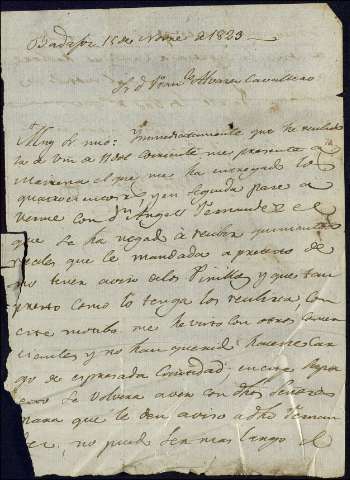 Badajoz 15 de Nbre de 1823
Sr. d. Juan Alvarez Cavallero
Muy Sr. mio: Immediatamente que he recibido
la de Vm. de 11 del corriente me presente a
el que me ha entregado los
quatrocientos y en seguida pase a
verme con Dn. Angel Fernandez el
que se ha negado à recibir quinientos
reales que le mandaba a pretesto de
no tener aviso de los Pinillos y que tan
pronto como lo tenga los recibira con
este motibo me he visto con otros Comer
ciantes y no han querido hacerse car
go de espresada Cantidad; en este
se volvera a ver con dhos Señores
para que le den aviso a dho Fernan
dez no puedo ser mas largo el